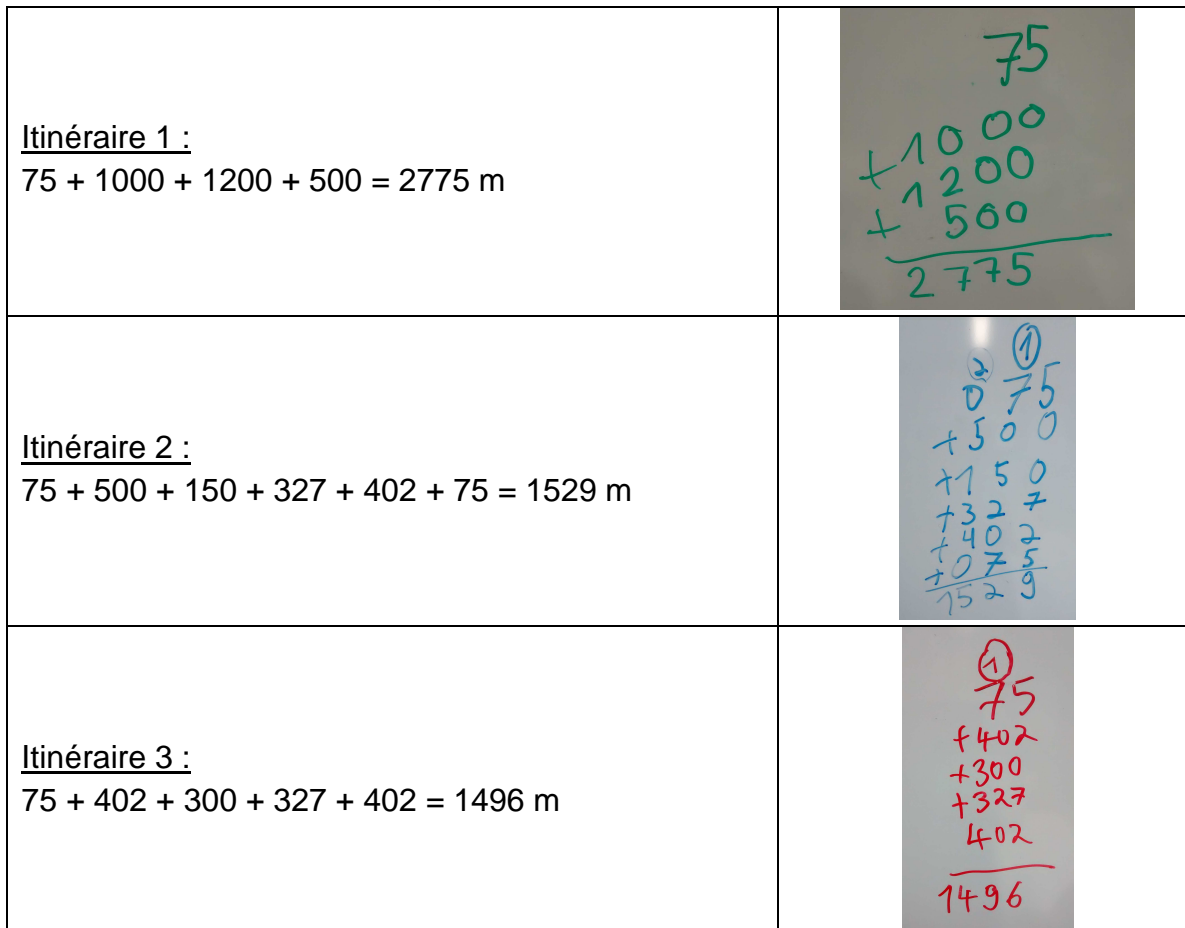 Itinéraire 1 :
75 + 1000 + 1200 + 500 = 2775 m
75
+1000
1200
+ 500
2775
Itinéraire 2 :
75 + 500 + 150 + 327 + 402 + 75 = 1529 m
2 1
075
+500
+150
+327
+402
+075
1529
Itinéraire 3 :
75 + 402 + 300 + 327 + 402 = 1496 m
1
75
+402
+300
+327
402
1496